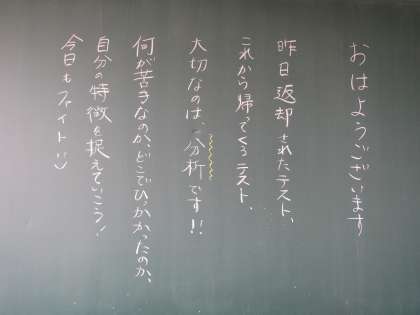 おはようございます
昨日返却されたテスト、
これから帰ってくるテスト、
大切なのは、分析です!!
何が苦手なのか、どこでひっかかったのか、
自分の特徴を捉えていこう!
今日もファイト!!